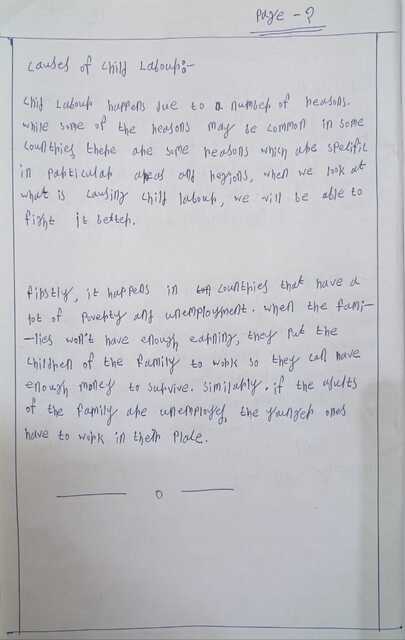 Page - 2
Causes of Child Labour:-
Chid Labour happens due to a number of reasons.
while some of the reasons may be common in some
countries, there are some reasons which are specific
in particular areas and regions, when we look at
what is causing child labour, we will be able to
fight it better.
firstly, it happens in countries that have a
lot of Poverty and unemployment. when the fami-
-lies won't have enough earning, they put the
children of the family to work so they can have
enough money to survive. Similarly, if the adults
of the family are unemployed, the younger ones
have to work in their place.